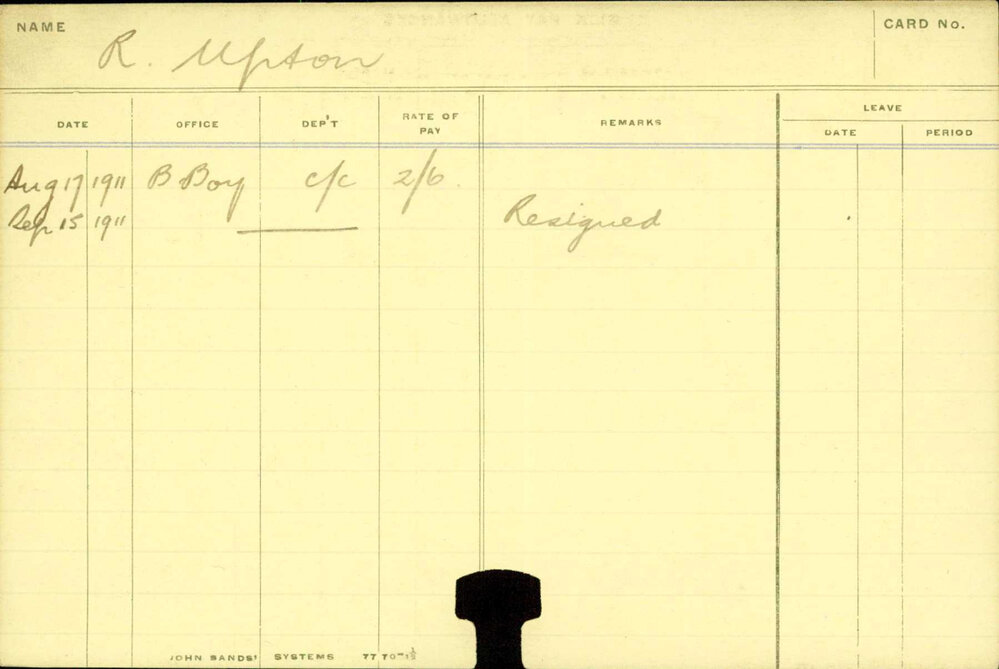 NAME R. Upton CARD No.
LEAVE
DATE OFFICE DEP'T RATE OF PAY REMARKS DATE PERIOD
Aug 17 1911 B Boy c/c 2/6
Sep 15 1911 Resigned
JOHN SANDS' SYSTEMS